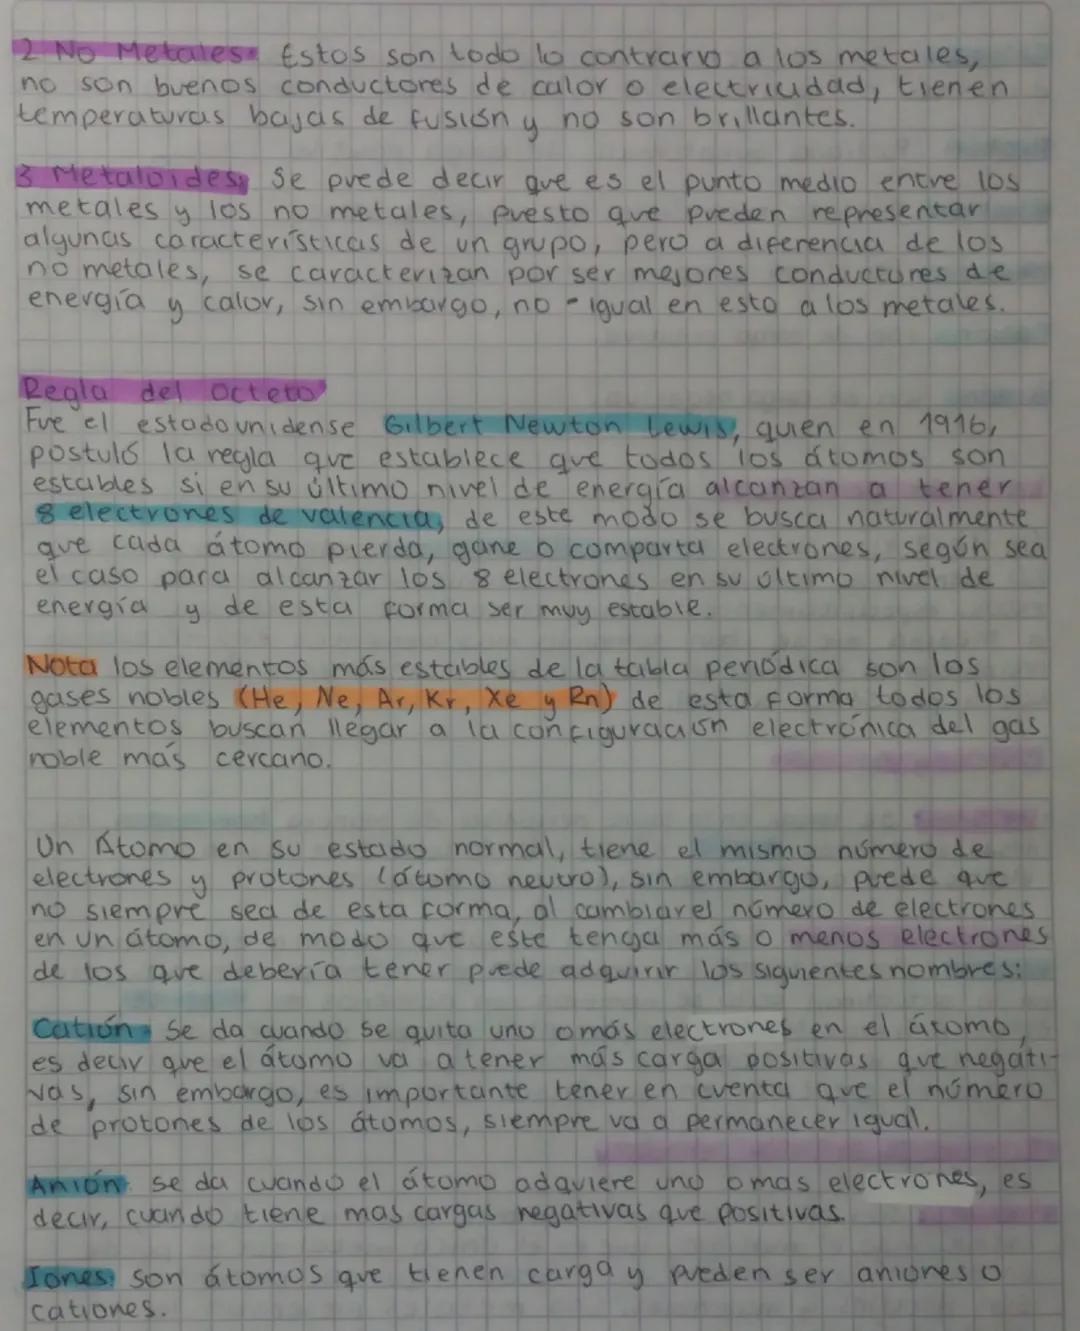 2 No Metales: Estos son todo lo contrario a los metales,
no son buenos conductores de calor o electricidad, tienen
temperaturas bajas de fusión y no son brillantes.
3 Metaloides: Se puede decir que es el punto medio entre los
metales y los no metales, puesto que pueden representar
algunas características de un grupo, pero a diferencia de los
no metales, se caracterizan por ser mejores conductores de
energía y calor, sin embargo, no - igual en esto a los metales.
Regla del octeto
Fue el estadounidense Gilbert Newton Lewis, quien en 1916,
postuló la regla que establece que todos los átomos son
estables si en su último nivel de energía alcanzan a tener
8 electrones de valencia, de este modo se busca naturalmente
que cada átomo pierda, gane o comparta electrones, según sea
el caso para alcanzar los 8 electrones en su último nivel de
energía y de esta forma ser muy estable.
Nota los elementos más estables de la tabla periódica son los
gases nobles (He, Ne, Ar, Kr, Xe y Rn) de esta forma todos los
elementos buscan llegar a la configuración electrónica del gas
noble más cercano.
Un Átomo en su estado normal, tiene el mismo número de
electrones y protones (átomo neutro), sin embargo, puede que
no siempre sea de esta forma, al cambiar el número de electrones
en un átomo, de modo que este tenga más o menos electrones
de los que debería tener puede adquirir los siguientes nombres:
Catión: Se da cuando se quita uno o más electrones en el átomo,
es decir que el átomo va a tener más carga positivas que negati-
vas, sin embargo, es importante tener en cuenta que el número
de protones de los átomos, siempre va a permanecer igual.
Anión: se da cuando el átomo adquiere uno o mas electrones, es
decir, cuando tiene mas cargas negativas que positivas.
Iones: son átomos que tienen carga y pueden ser aniones o
cationes.